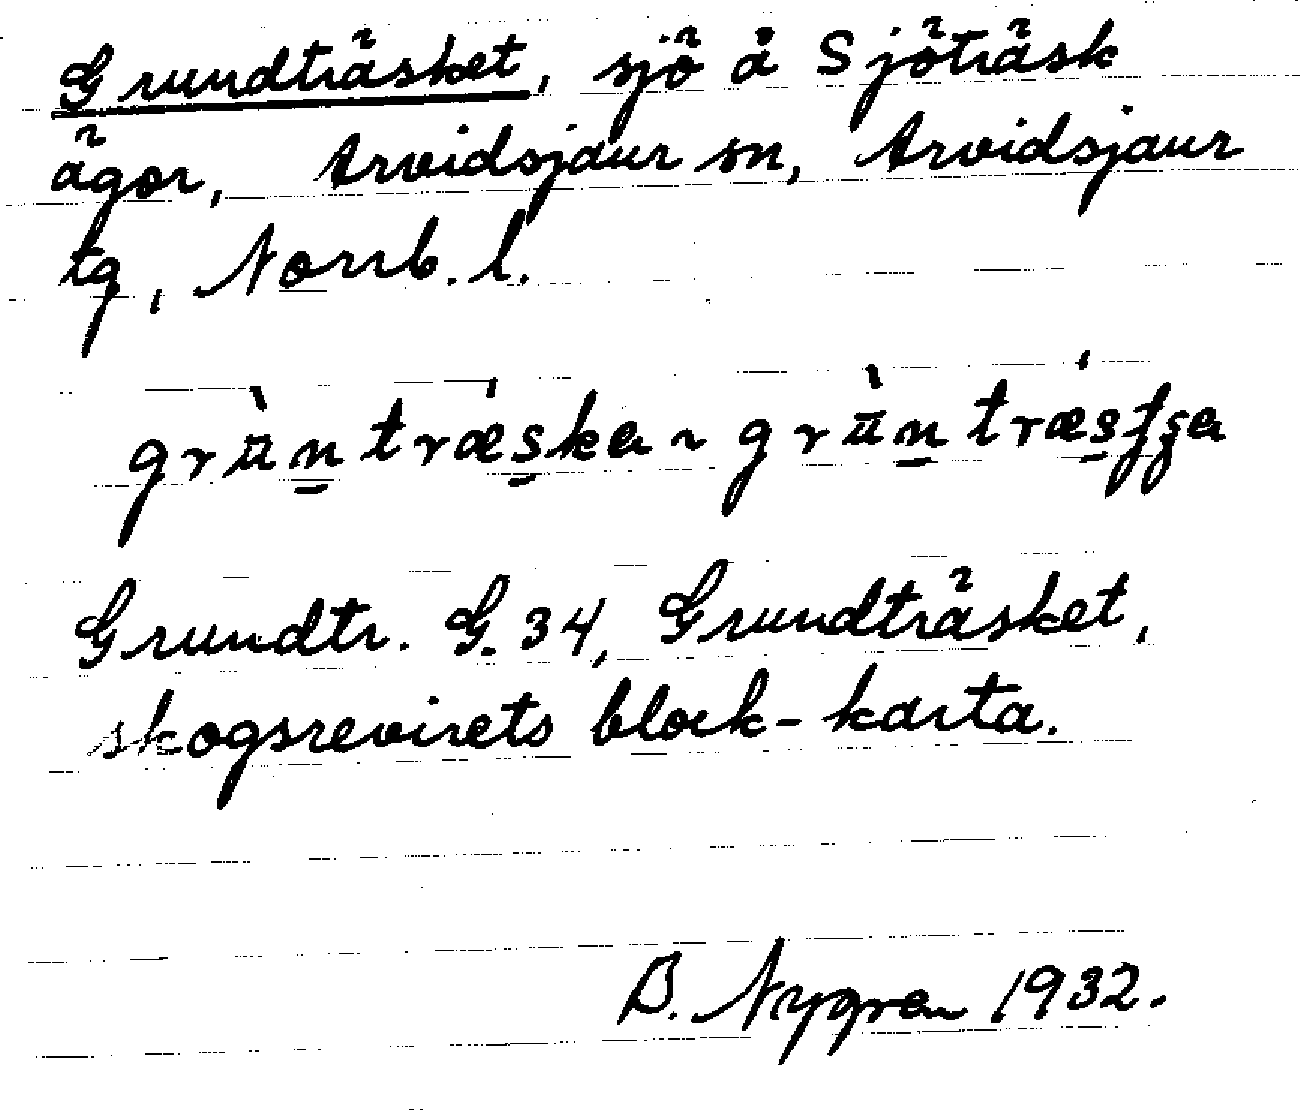 Grundträsket, sjö å Sjöträsk
ägor, Arvidsjaur sn, Arvidsjaur
tg, Norrb. l.
Grundtr. G. 34, Grundträsket,
skogsrevirets block-karta.
B. Nygren 1932.